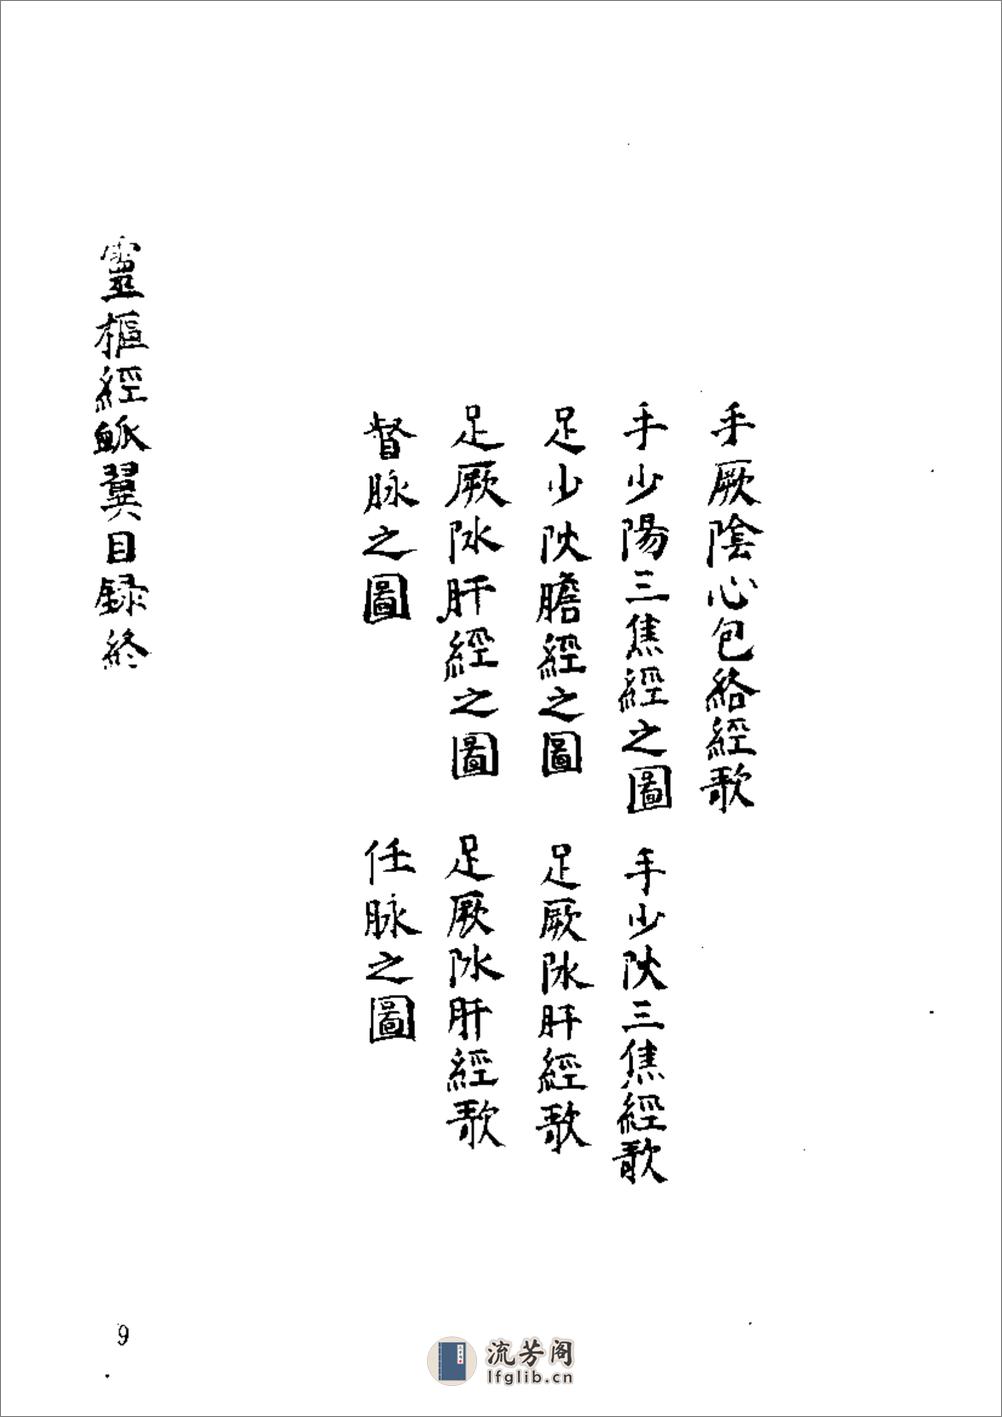 手厥陰心包絡經歌
手少陽三焦經之圖
手少阦三焦經歌
足少阦膽經之圖
足厥阥肝經歌
足厥阥肝經之圖
足厥阥肝經歌
督脉之圖
任脉之圖
靈樞經脈翼目録終
9
流芳阁
lfglib.cn